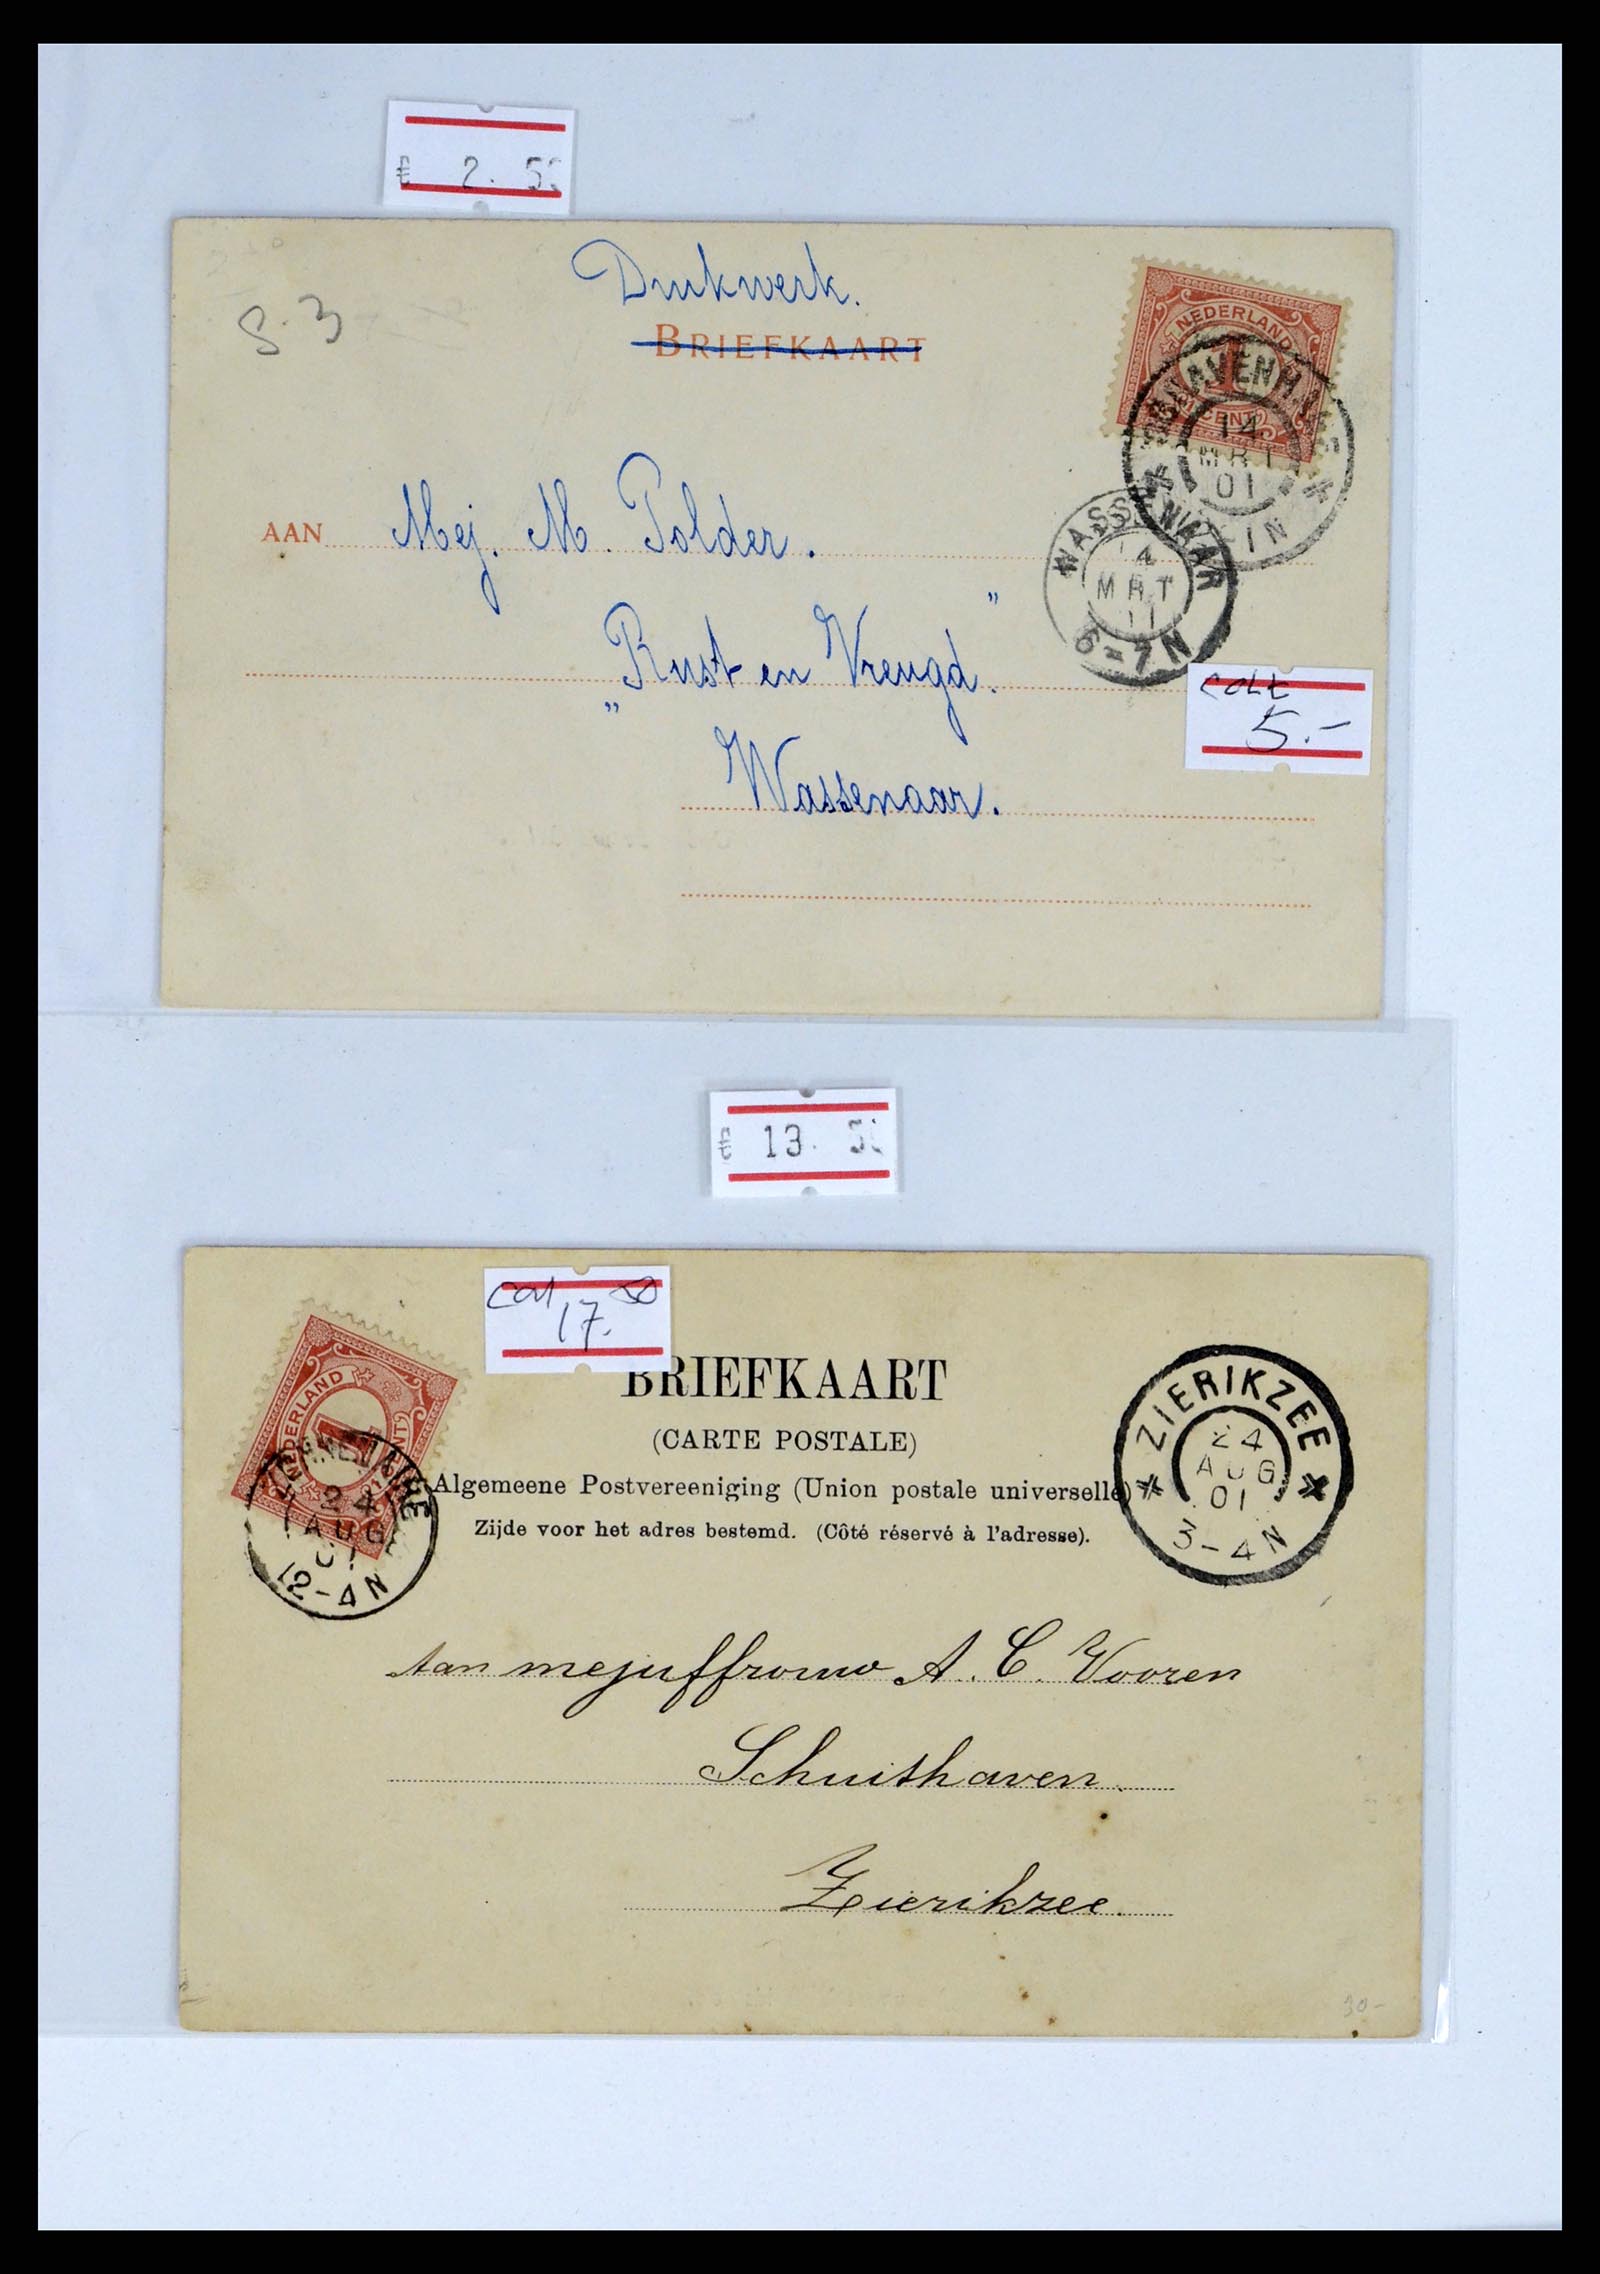 € 2.
S.3
Drukwerk.
BRIEFKAART
NEDERLAND
1
1 CENT
14
MRT
01
AAN Mej. M. Polder.
WASSENAAR
MRT
6-7N
„Rust en Vreugd."
Wassenaar.
5.-
€ 13.
17.50
BRIEFKAART
(CARTE POSTALE)
Algemeene Postvereeniging (Union postale universelle)
Zijde voor het adres bestemd. (Côté réservé à l'adresse).
NEDERLAND
1
CENT
24
AUG
12-4N
ZIERIKZEE
24
AUG
01
3-4N
Aan mejuffrouw A. C. Vooren
Schuithaven.
Zierikzee.
30-